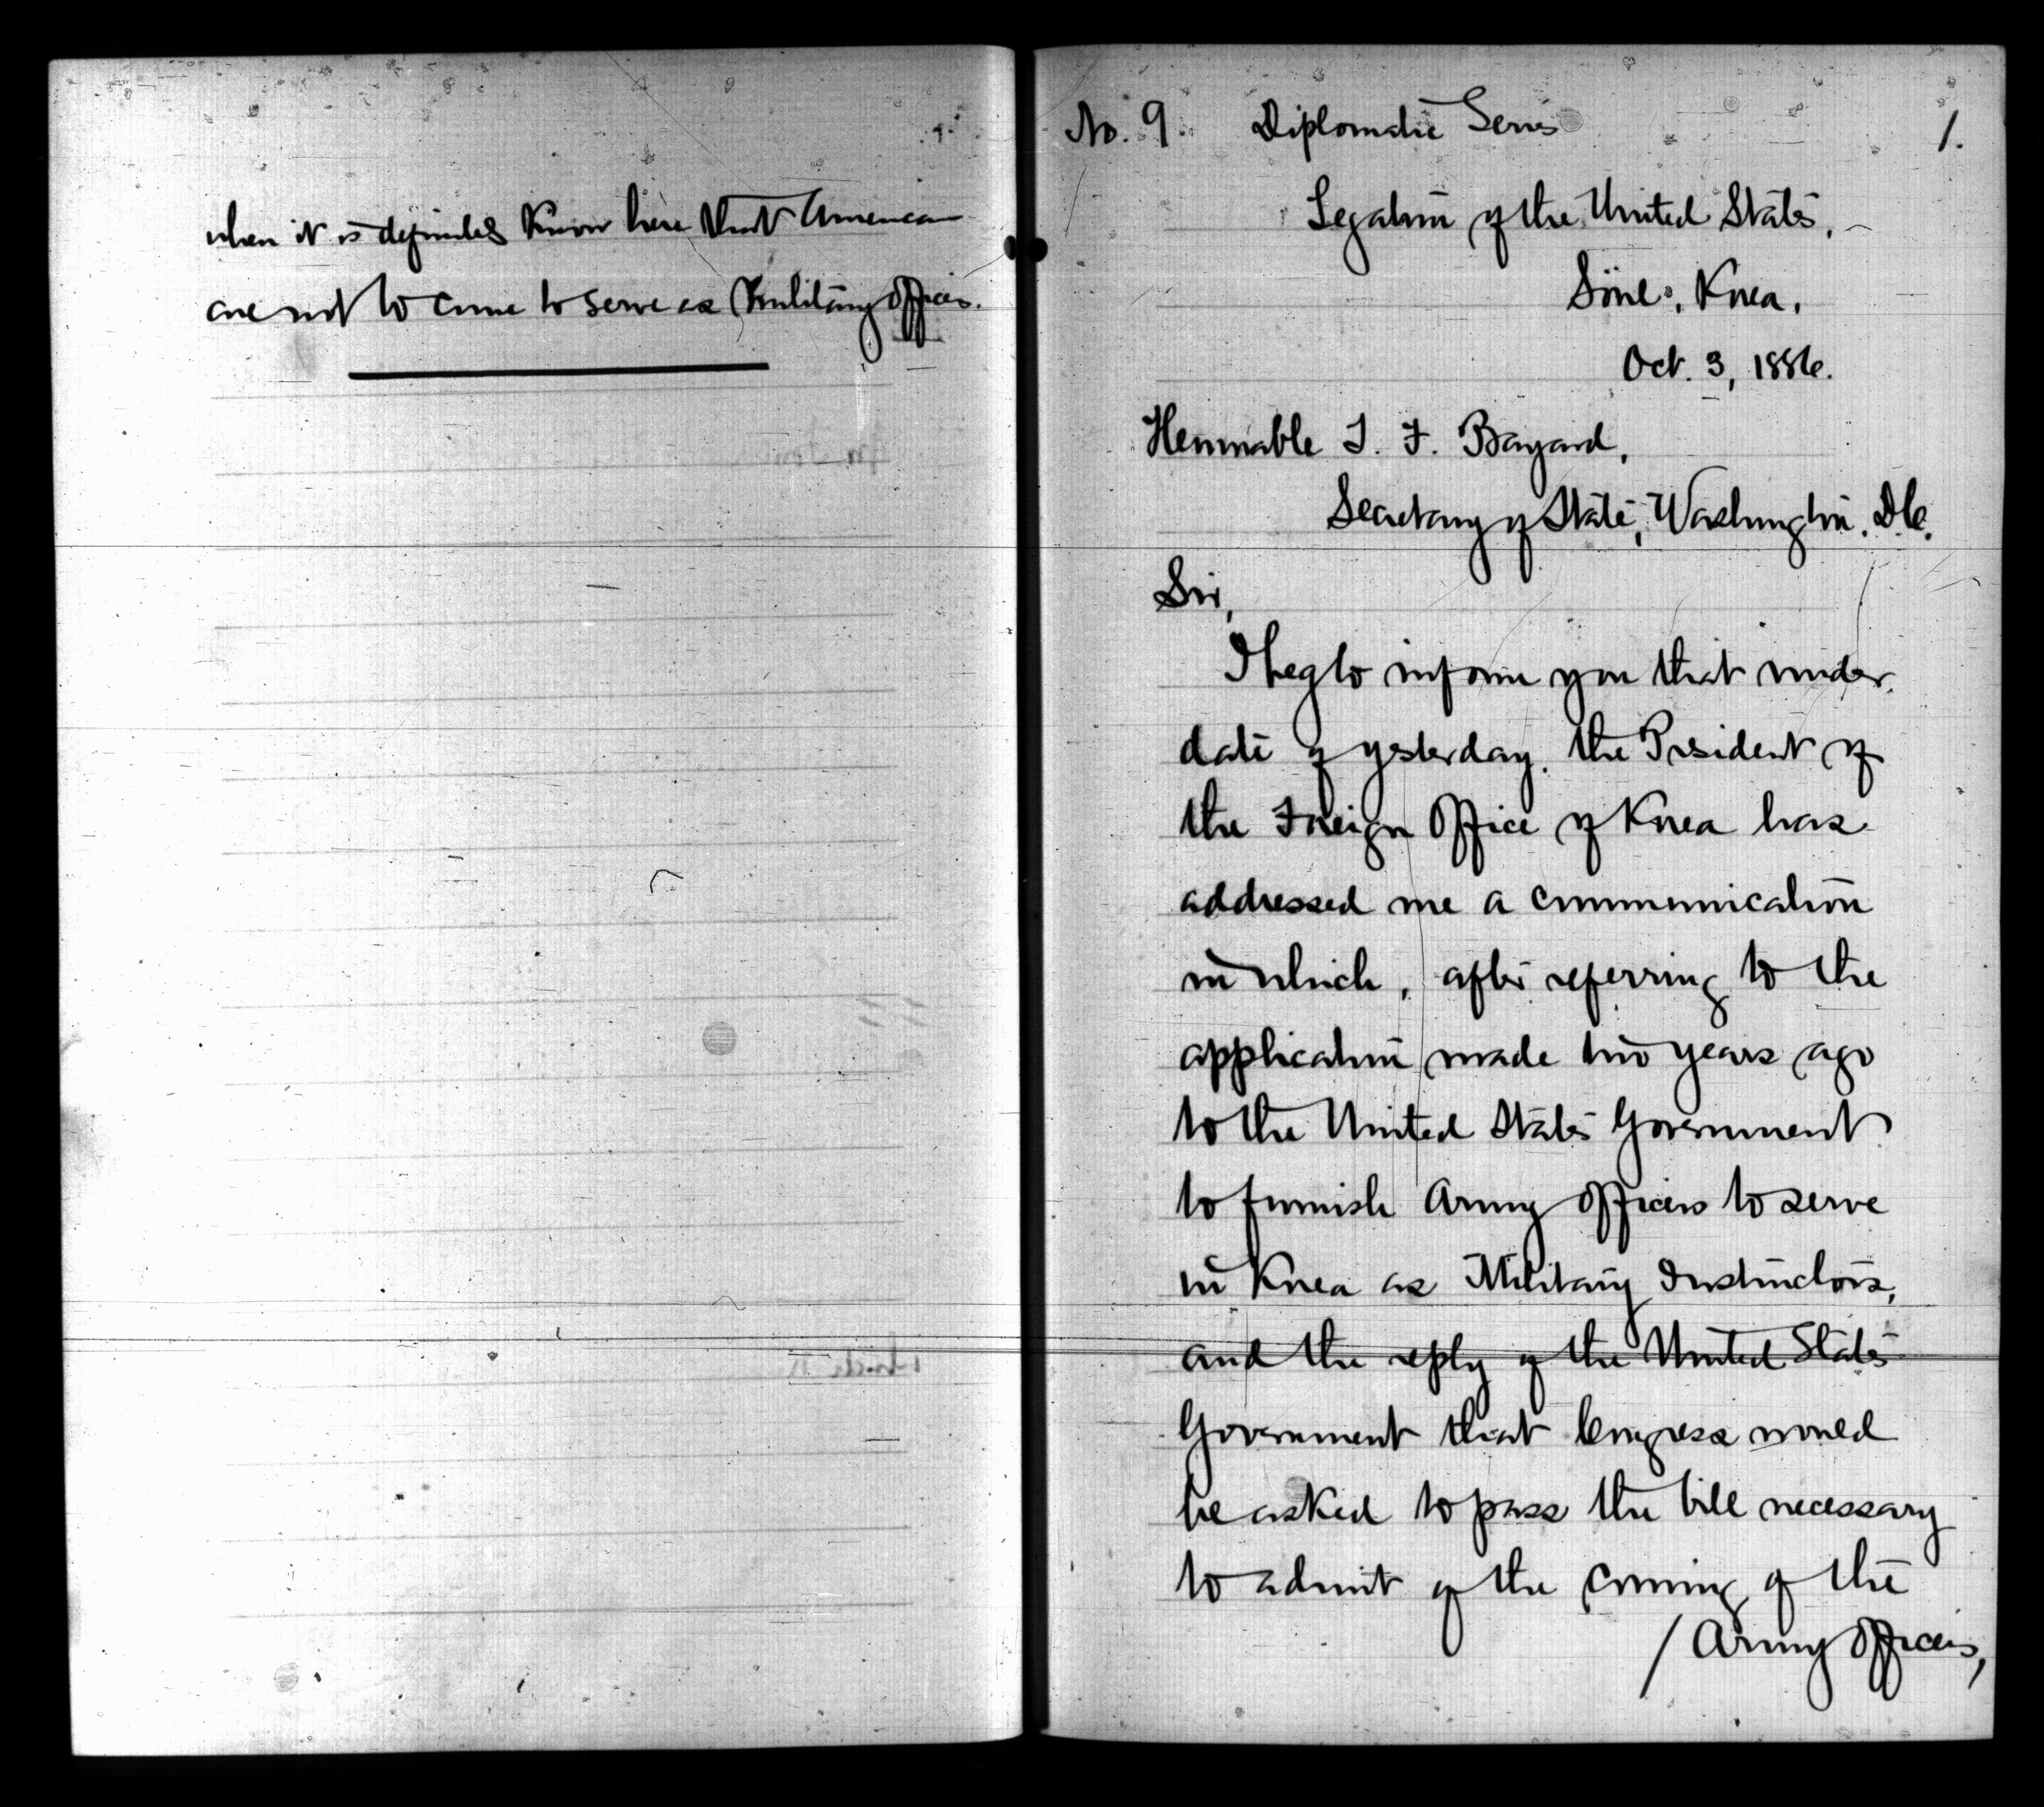 when it is definitely known here that American
are not to come to serve as Military Officers.
No. 9. Diplomatic Series 1.
Legation of the United States,
Söul, Korea,
Oct. 3, 1886.
Honorable T. F. Bayard,
Secretary of State, Washington, D.C.
Sir,
I beg to inform you that under
date of yesterday, the President of
the Foreign Office of Korea has
addressed me a communication
in which, after referring to the
application made two years ago
to the United States Government
to furnish Army Officers to serve
in Korea as Military Instructors,
and the reply of the United States
Government that Congress would
be asked to pass the bill necessary
to admit of the coming of the
/ Army Officers,